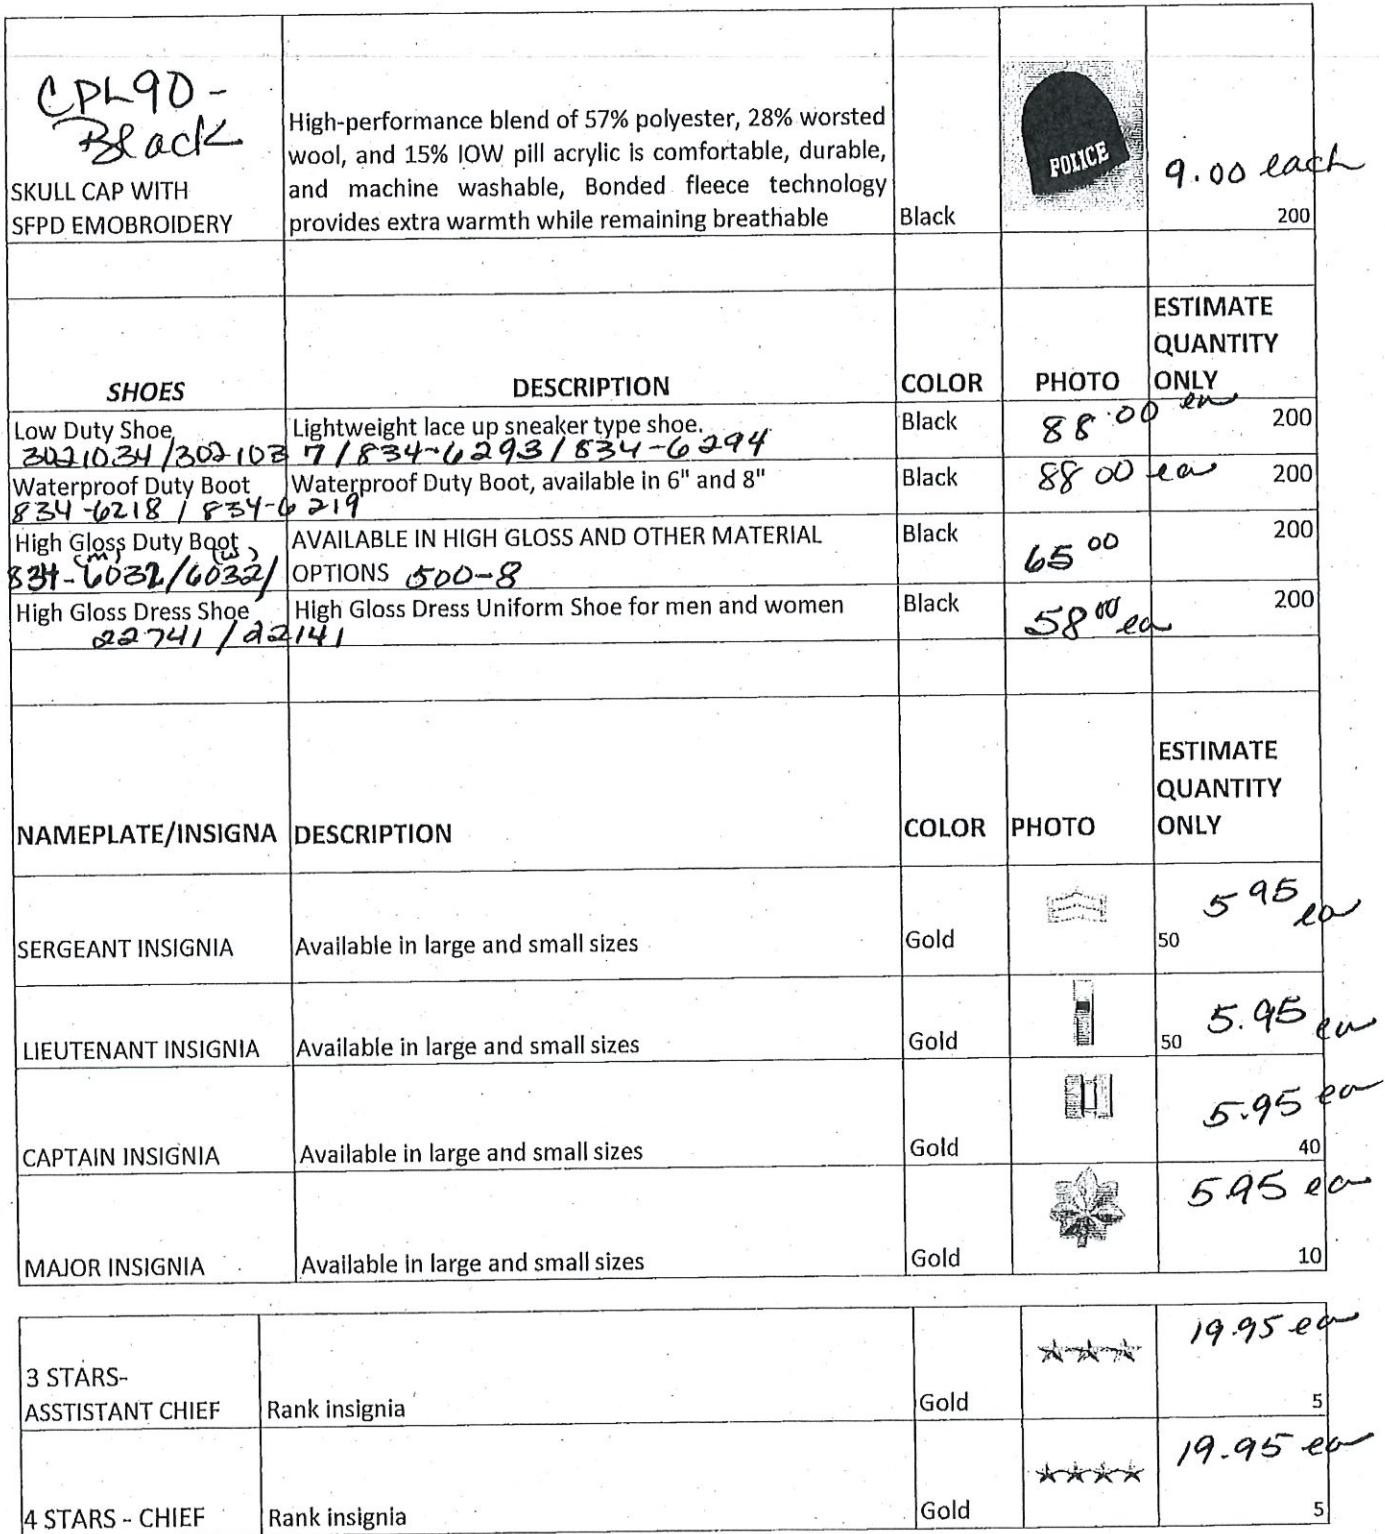 CPL90 -
Black
SKULL CAP WITH
SFPD EMOBROIDERY
High-performance blend of 57% polyester, 28% worsted
wool, and 15% IOW pill acrylic is comfortable, durable,
and machine washable, Bonded fleece technology
provides extra warmth while remaining breathable
Black
POLICE
9.00 each
200
SHOES DESCRIPTION COLOR PHOTO ESTIMATE
QUANTITY
ONLY
Low Duty Shoe Lightweight lace up sneaker type shoe. Black 88.00 ea 200
3021034/3021037/834-6293/834-6294
Waterproof Duty Boot Waterproof Duty Boot, available in 6" and 8" Black 88 00 ea 200
834-6218 / 834-6219
High Gloss Duty Boot AVAILABLE IN HIGH GLOSS AND OTHER MATERIAL Black 65 00 200
(m) (w)
834-6031/6032/ OPTIONS 500-8
High Gloss Dress Shoe High Gloss Dress Uniform Shoe for men and women Black 58 00 ea 200
22741 / 22141
NAMEPLATE/INSIGNA DESCRIPTION COLOR PHOTO ESTIMATE
QUANTITY
ONLY
SERGEANT INSIGNIA Available in large and small sizes Gold 50 5 95 ea
LIEUTENANT INSIGNIA Available in large and small sizes Gold 50 5.95 ea
CAPTAIN INSIGNIA Available in large and small sizes Gold 5.95 ea
40
MAJOR INSIGNIA Available in large and small sizes Gold 5.95 ea
10
3 STARS-
ASSTISTANT CHIEF Rank insignia Gold 19.95 ea
5
4 STARS - CHIEF Rank insignia Gold 19.95 ea
5